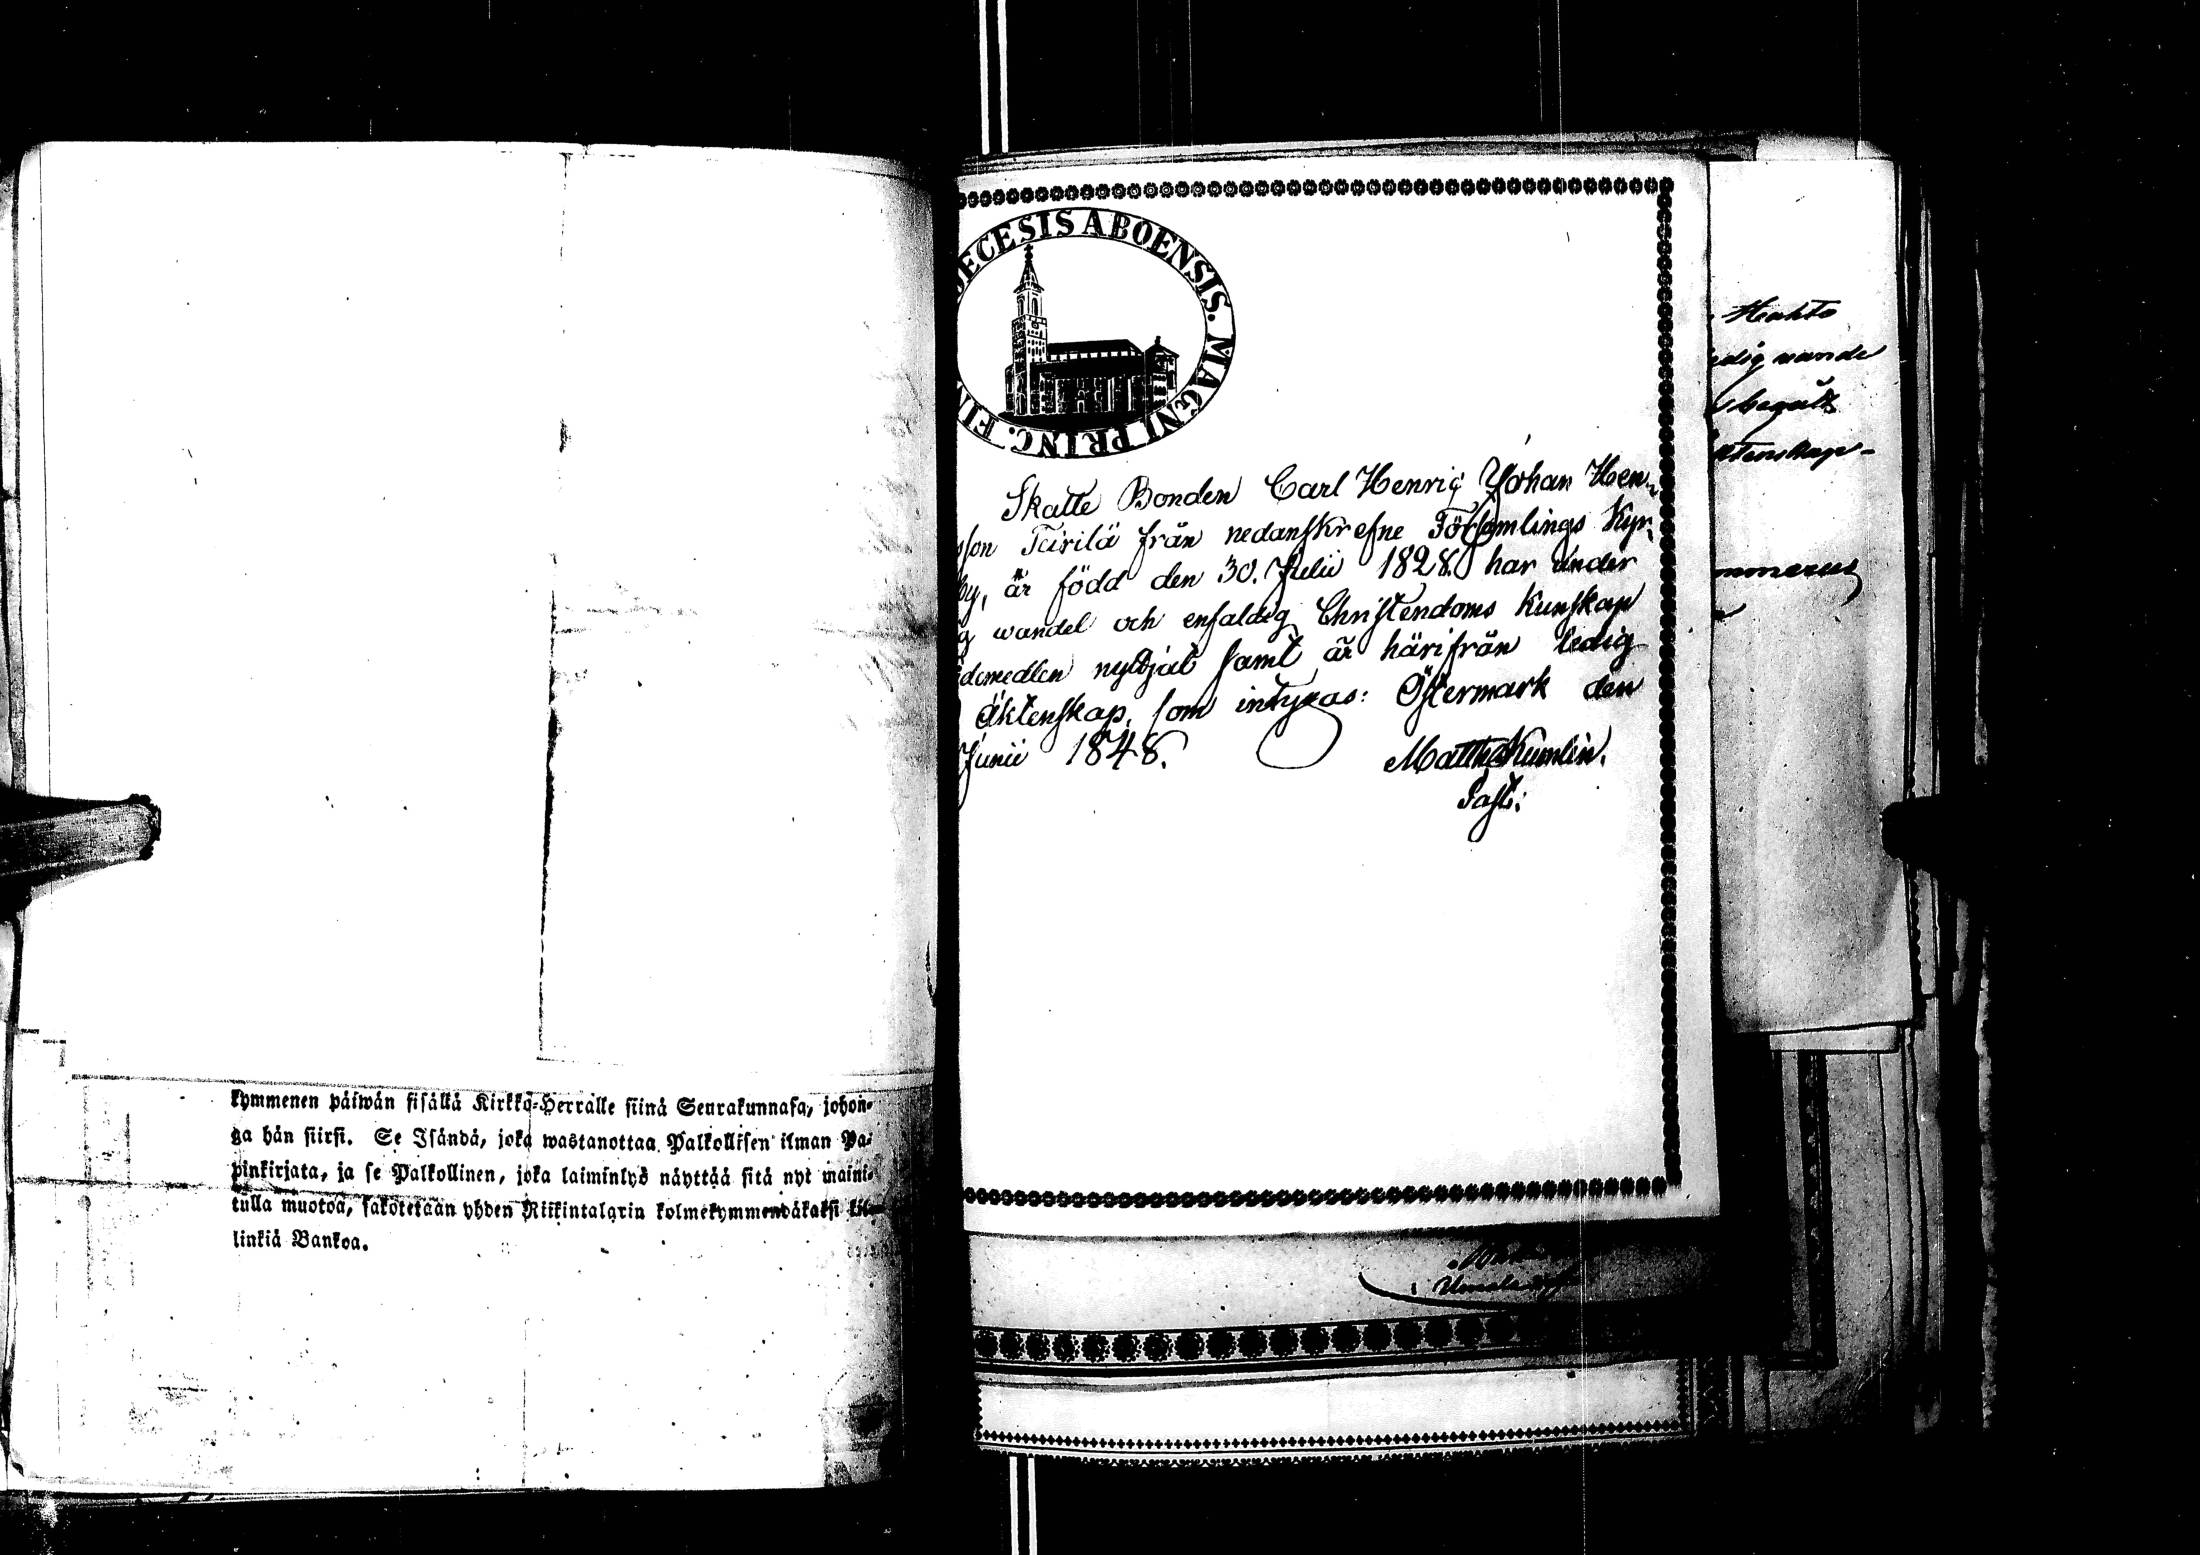 kymmenen päiwän sisällä Kirkko-Herralle siinä Seurakunnasa, johon-
ga hän siirsi. Se Isändä, joka wastanottaa Palkollisen ilman Pa-
pinkirjata, ja se Palkollinen, joka laiminlyö näyttää sitä nyt maini-
tulla muotoa, sakotetaan yhden Riikintalarin kolmekymmendäkaksi kil-
linkiä Bankoa.
DECESIS ABOENSIS. MAGNI PRINC. FIN
Skatte Bonden Carl Henric Johan Hen-
sson Teirilä från nedanskrefne Församlings Kyr-
by, är född den 30. Julii 1828. har under
g wandel och enfaldig Christendoms Kunskap
demedlen nyttjat samt är härifrån ledig
äktenskap, som intygas: Östermark den
Junii 1848.
Matth Kumlin.
Past:
Hahto
edig wande
begått
ktenskap-